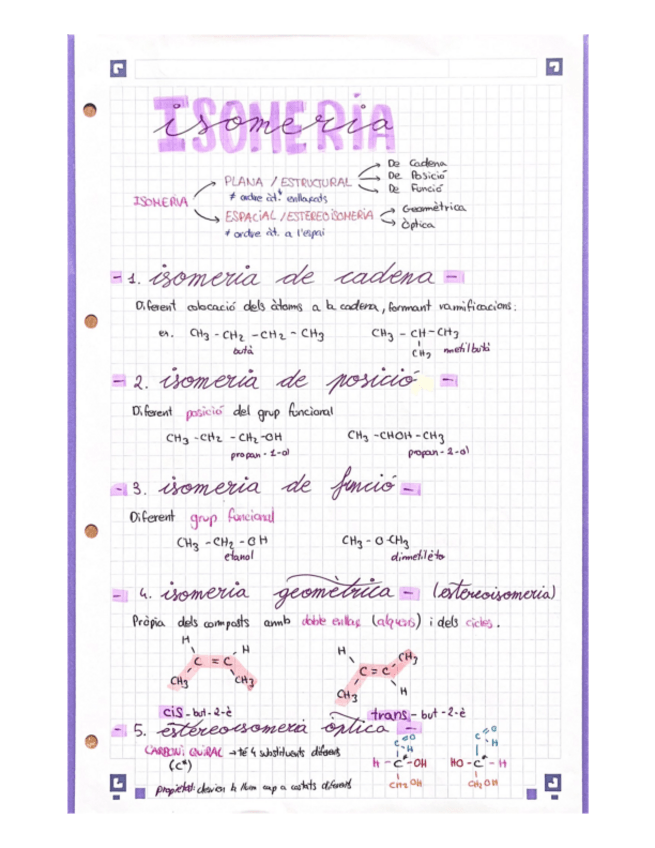 ISOMERIA
isomeria
ISOMERIA
PLANA / ESTRUCTURAL
≠ ordre àt. enllaçats
De Cadena
De Posició
De Funció
ESPACIAL / ESTEREOISOMERIA
≠ ordre àt. a l'espai
Geomètrica
Òptica
- 1. isomeria de cadena -
Diferent colocació dels àtoms a la cadena, formant ramificacions:
ex. CH3 - CH2 - CH2 - CH3
CH3 - CH - CH3
CH3
butà
metilbutà
- 2. isomeria de posició -
Diferent posició del grup funcional
CH3 - CH2 - CH2 - OH
CH3 - CHOH - CH3
propan - 1 - ol
propan - 2 - ol
- 3. isomeria de funció -
Diferent grup funcional
CH3 - CH2 - OH
CH3 - O - CH3
etanol
- 4. isomeria geomètrica - (estereoisomeria)
Pròpia dels composts amb doble enllaç (alquens) i dels cicles.
H H
C = C
CH3 CH3
H CH3
C = C
CH3 H
cis - but - 2 - è
trans - but - 2 - è
- 5. estereoisomeria òptica -
CARBONI QUIRAL → té 4 substituents diferents
(C*)
propietat: desvien la llum cap a costats diferents
C = O
H
H - C* - OH
CH2 OH
C = O
H
HO - C* - H
CH2 OH